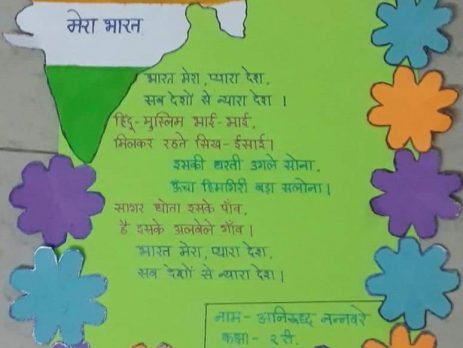 मेरा भारत
भारत मेरा, प्यारा देश,
सब देशों से न्यारा देश ।
हिंदू-मुस्लिम भाई-भाई,
मिलकर रहते सिख-ईसाई।
इसकी धरती उगले सोना,
ऊँचा हिमगिरी बड़ा सलोना।
सागर धोता इसके पाँव,
है इसके अलबेले गाँव ।
भारत मेरा, प्यारा देश,
सब देशों से न्यारा देश ।
नाम- अनिरुध्द नन्नवरे
कक्षा- २ री.